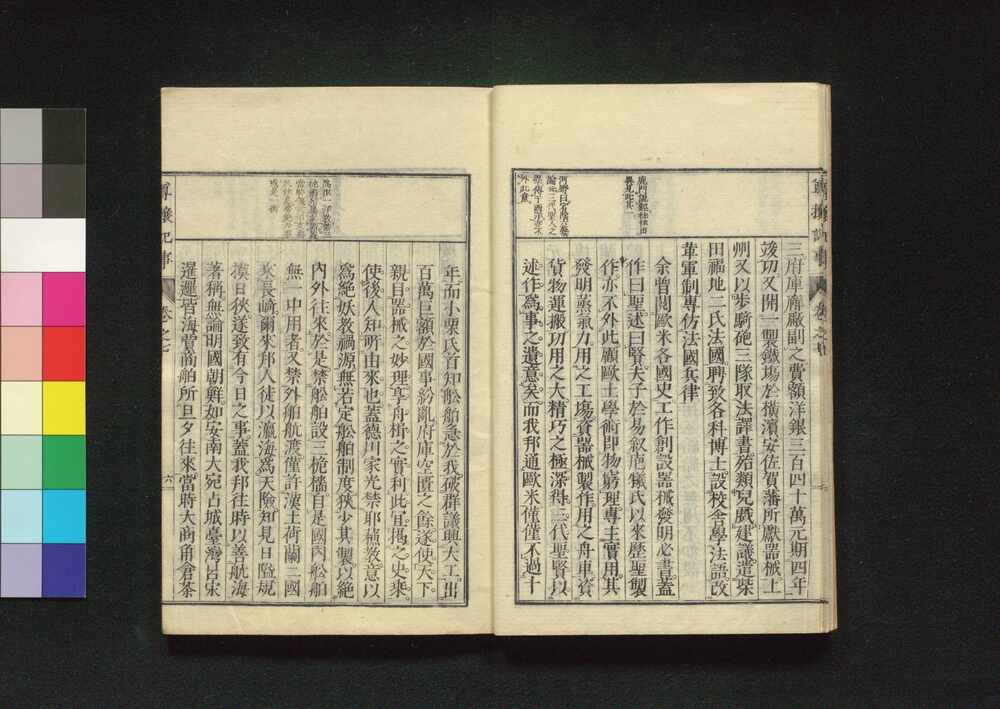 尊攘記事
卷之七
三府庫廨廠副之費額洋銀三百四十萬元期四年
竣功又開一製鐵場於橫濱安佐賀藩所獻器械上
州又以步騎砲三隊取法譯書殆類兒戲建議遣柴
田福地二氏法國聘致各科博士設校舍學法語改
革軍制專仿法國兵律
余曾閱歐米各國史工作創設器械發明必書蓋
作曰聖述曰賢夫子於易敘庖犧氏以來歷聖製
作亦不外此顧歐土學術即物窮理專主實用其
發明蒸氣力用之工場資器械製作用之舟車資
貨物運搬功用之大精巧之極深得三代聖賢以
述作爲事之遺意矣而我邦通歐米僅僅不過十
鹿門說經往往出
河野曰
論
外此意
年而小栗氏首知船舶急於我破群議興大工出
百萬巨額於國事紛亂府庫空匱之餘遂使天下
親目器械之妙理享舟楫之實利此宜揭之史乘
使後人知所由來也蓋德川家光禁耶蘓敎意以
爲絕妖敎禍源無若定船舶制度狹少其製以絕
內外往來於是禁船舶設三桅檣自是國內船舶
無一中用者又禁外舶航渡僅許漢土荷蘭二國
來長崎爾來邦人徒以瀛海爲天險知見日隘規
摸日狹遂致有今日之事蓋我邦往時以善航海
著稱無論明國朝鮮如安南大宛占城臺灣呂宋
暹邏皆海賈商舶所旦夕往來當時大商角倉茶
尊攘記事
卷之七
六